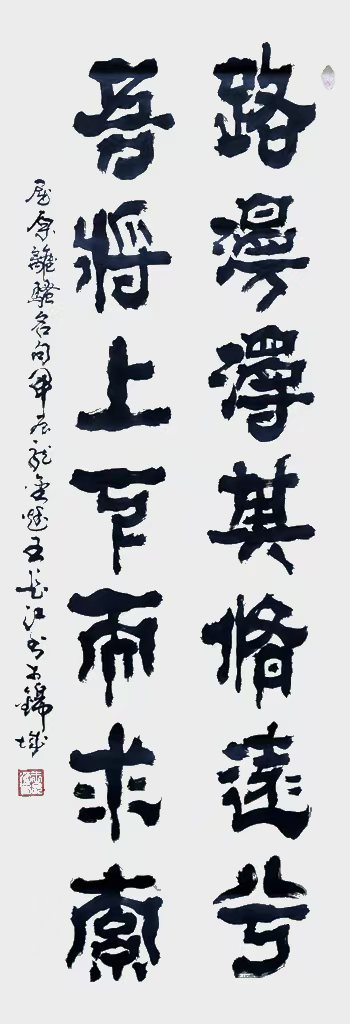 路漫漫其脩遠兮
吾將上下而求索
屈原離騷名句甲辰龍王長江书于錦城